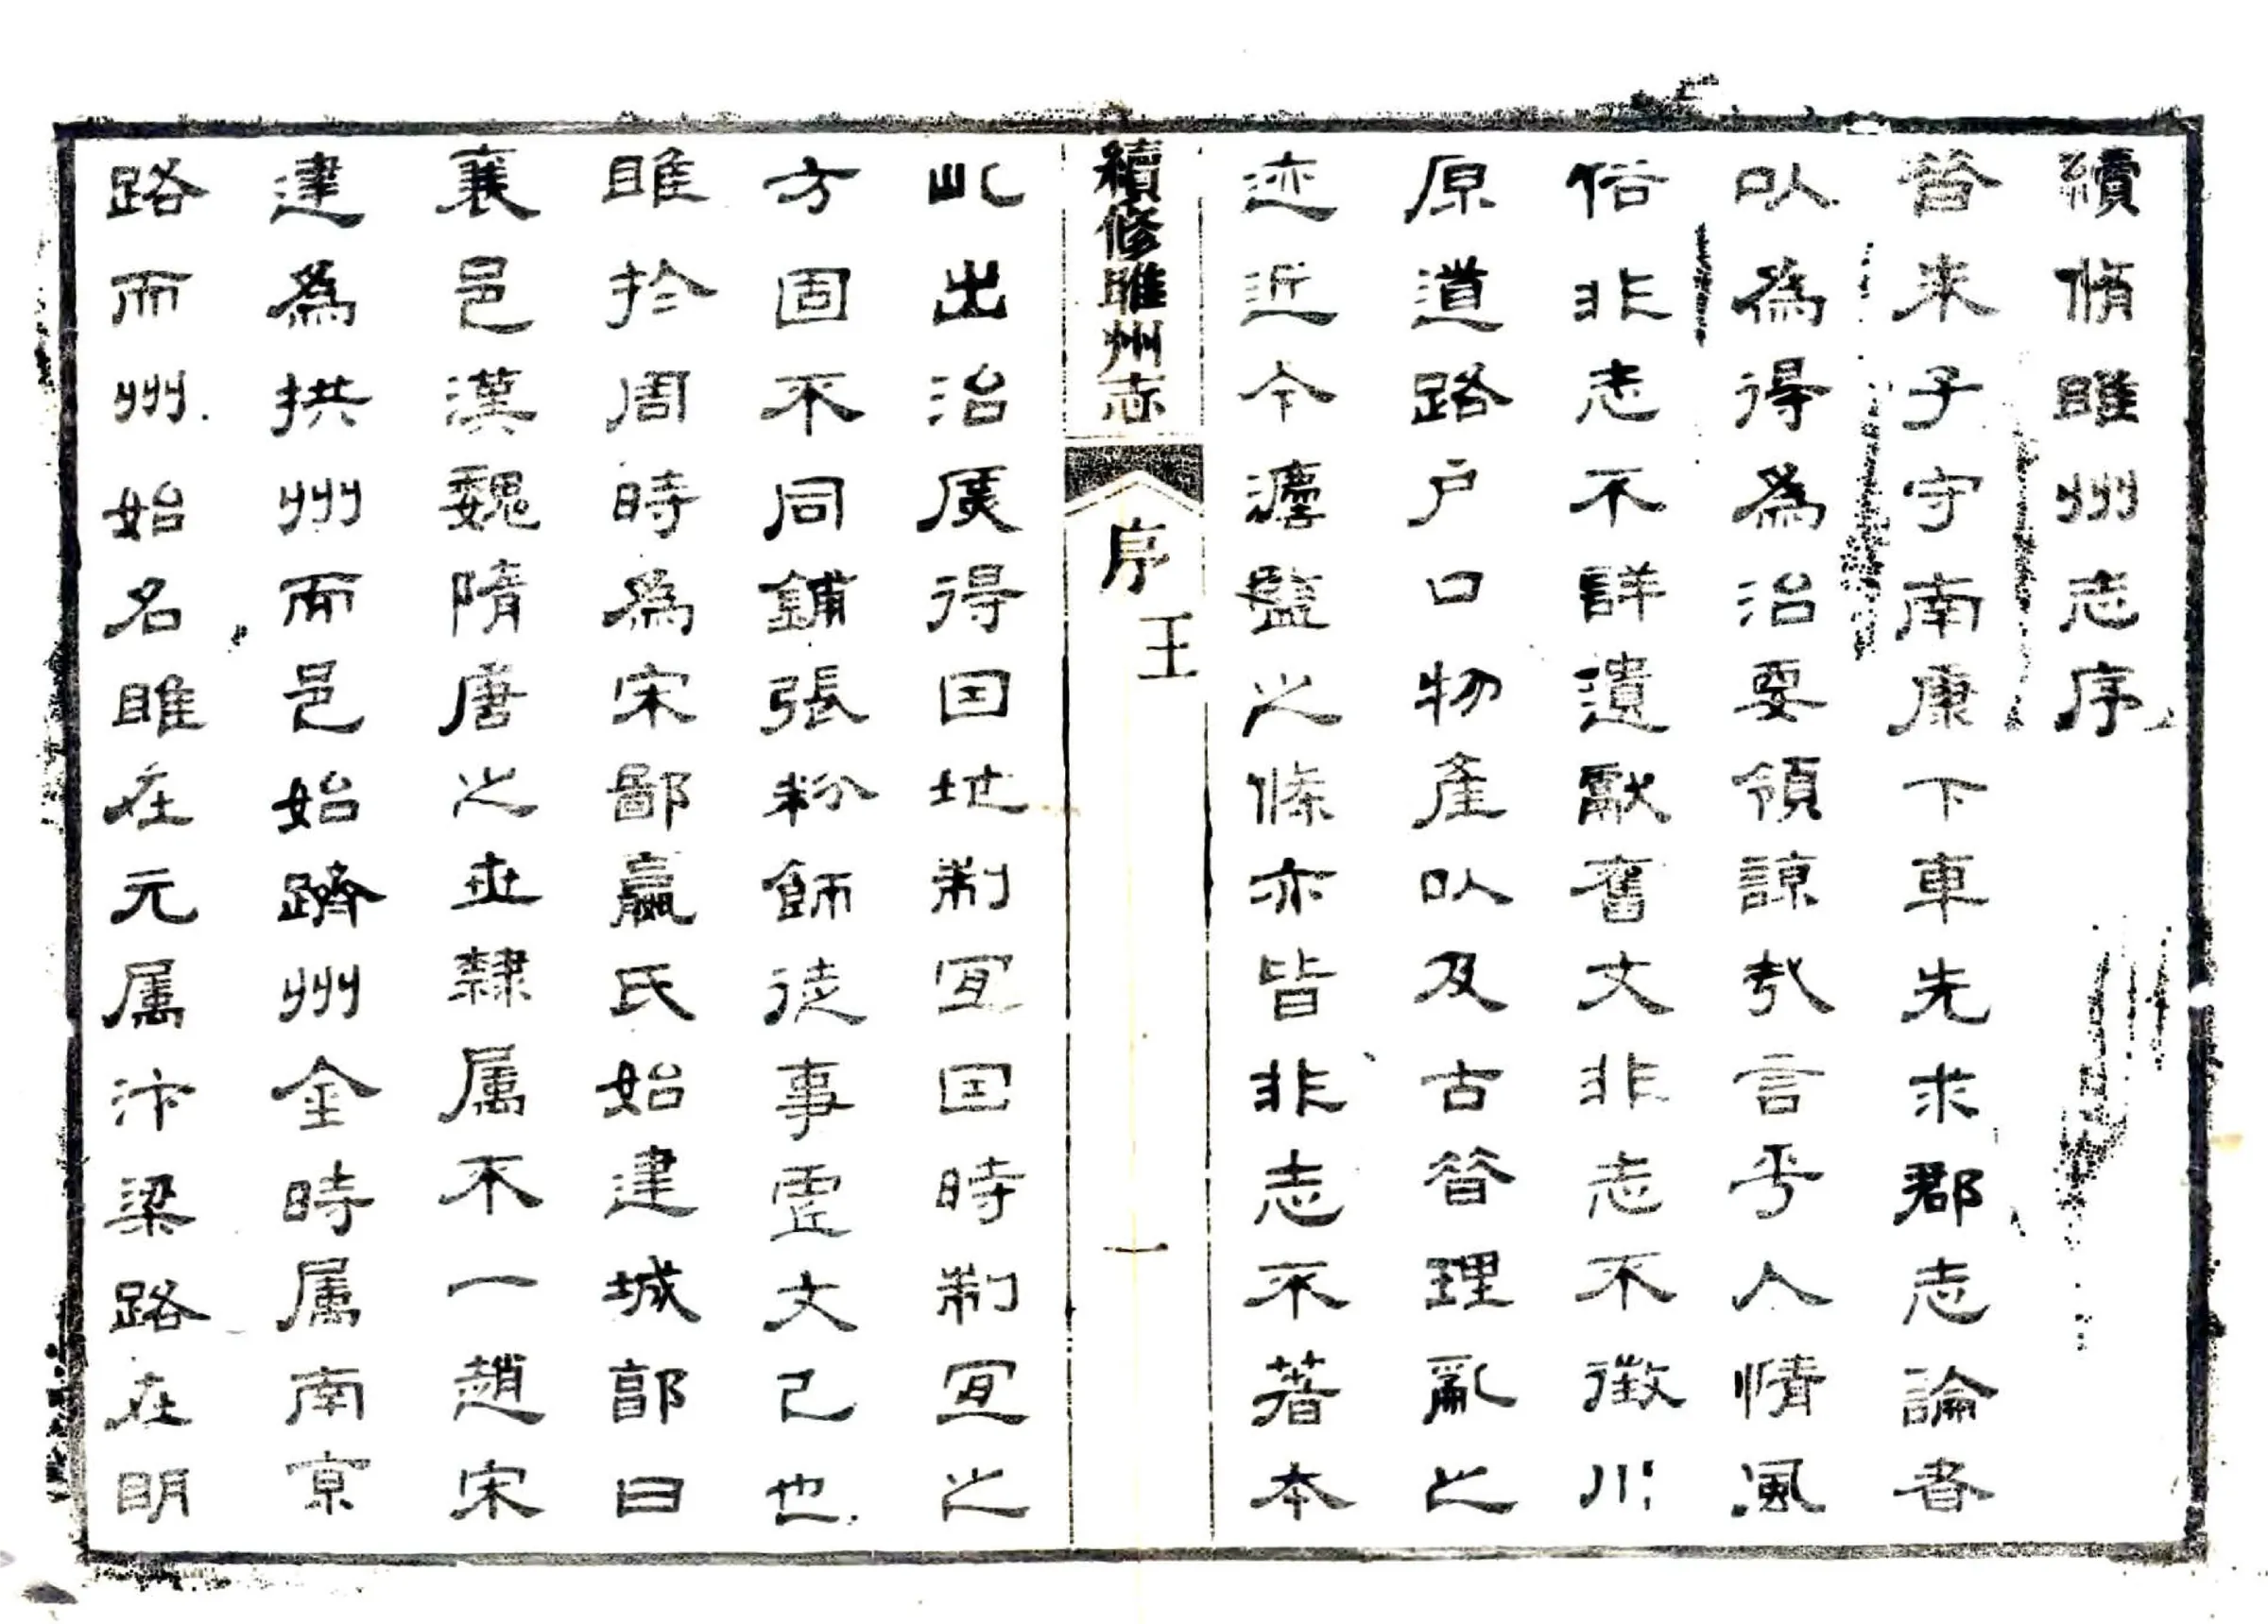 續脩睢州志序
昔朱子守南康下車先求郡志論者
以為得為治要領諒哉言乎人情風
俗非志不詳遺獻舊文非志不徵川
原道路戶口物產以及古昔理亂之
迹近今灋鑒之條亦皆非志不著本
續修睢州志
序
王
一
此出治廣得因地制宜因時制宜之
方固不同鋪張粉飾徒事虛文已也
睢於周時為宋鄙嬴氏始建城郭曰
襄邑漢魏隋唐之世隸属不一趙宋
建為拱州而邑始躋州金時属南京
路而州始名睢在元属汴梁路在明